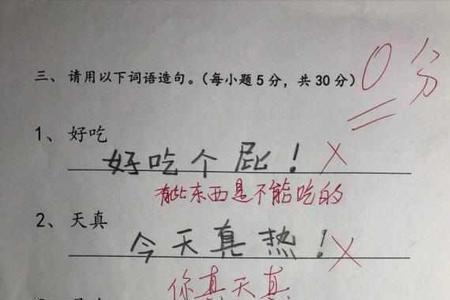 三、请用以下词语造句。（每小题5分，共30分） 0分
1、好吃
好吃个屁！ ×
有些东西是不能吃的
2、天真
今天真热！ ×
你真天真